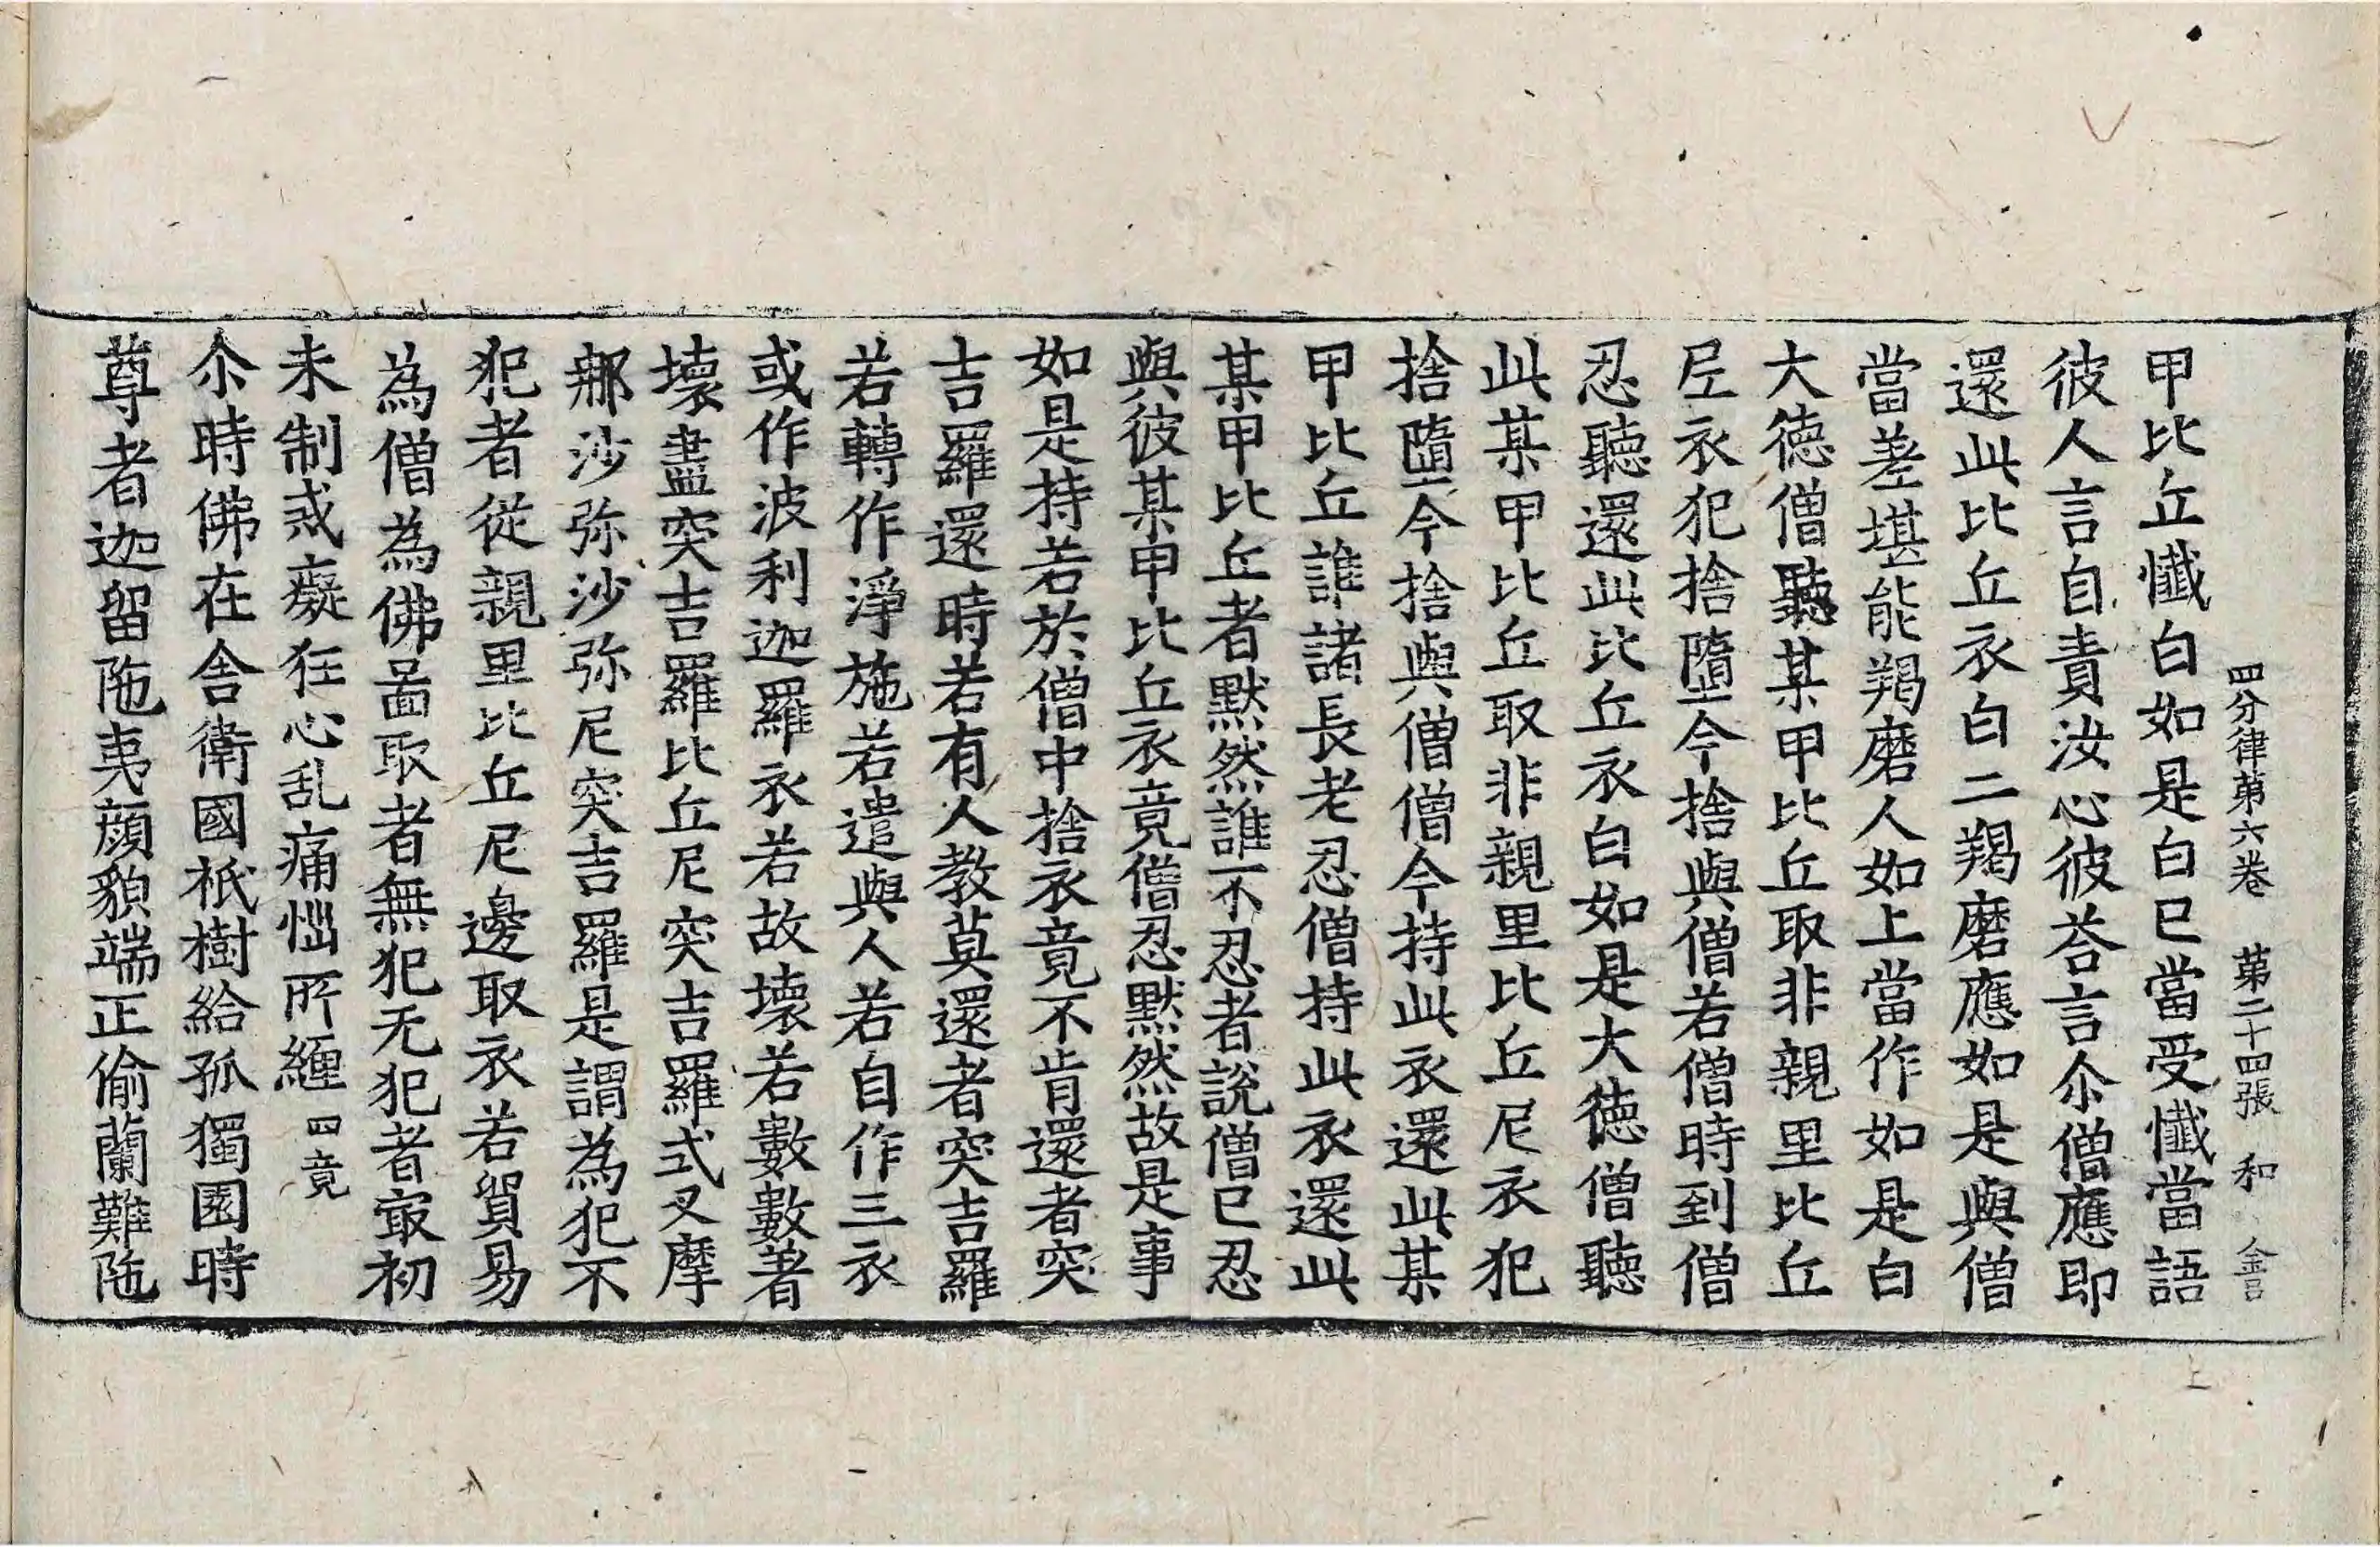 四分律第六卷 第二十四張 和 金言
甲比丘懺白如是白已當受懺當語
彼人言自責汝心彼荅言尒僧應即
還此比丘衣白二羯磨應如是與僧
當差堪能羯磨人如上當作如是白
大徳僧聽某甲比丘取非親里比丘
尼衣犯捨墮今捨與僧若僧時到僧
忍聽還此比丘衣白如是大徳僧聽
此某甲比丘取非親里比丘尼衣犯
捨墮今捨與僧僧今持此衣還此某
甲比丘誰諸長老忍僧持此衣還此
某甲比丘者默然誰不忍者說僧已忍
與彼某甲比丘衣竟僧忍默然故是事
如是持若於僧中捨衣竟不肯還者突
吉羅還時若有人教莫還者突吉羅
若轉作淨施若遣與人若自作三衣
或作波利迦羅衣若故壞若數數著
壞盡突吉羅比丘尼突吉羅式叉摩
那沙弥沙弥尼突吉羅是謂為犯不
犯者從親里比丘尼邊取衣若貿易
為僧為佛啚取者無犯无犯者冣初
未制戒癡狂心乱痛惱所纏 四竟
尒時佛在舍衛國祇樹給孤獨園時
尊者迦留陁夷顔貌端正偷蘭難陁